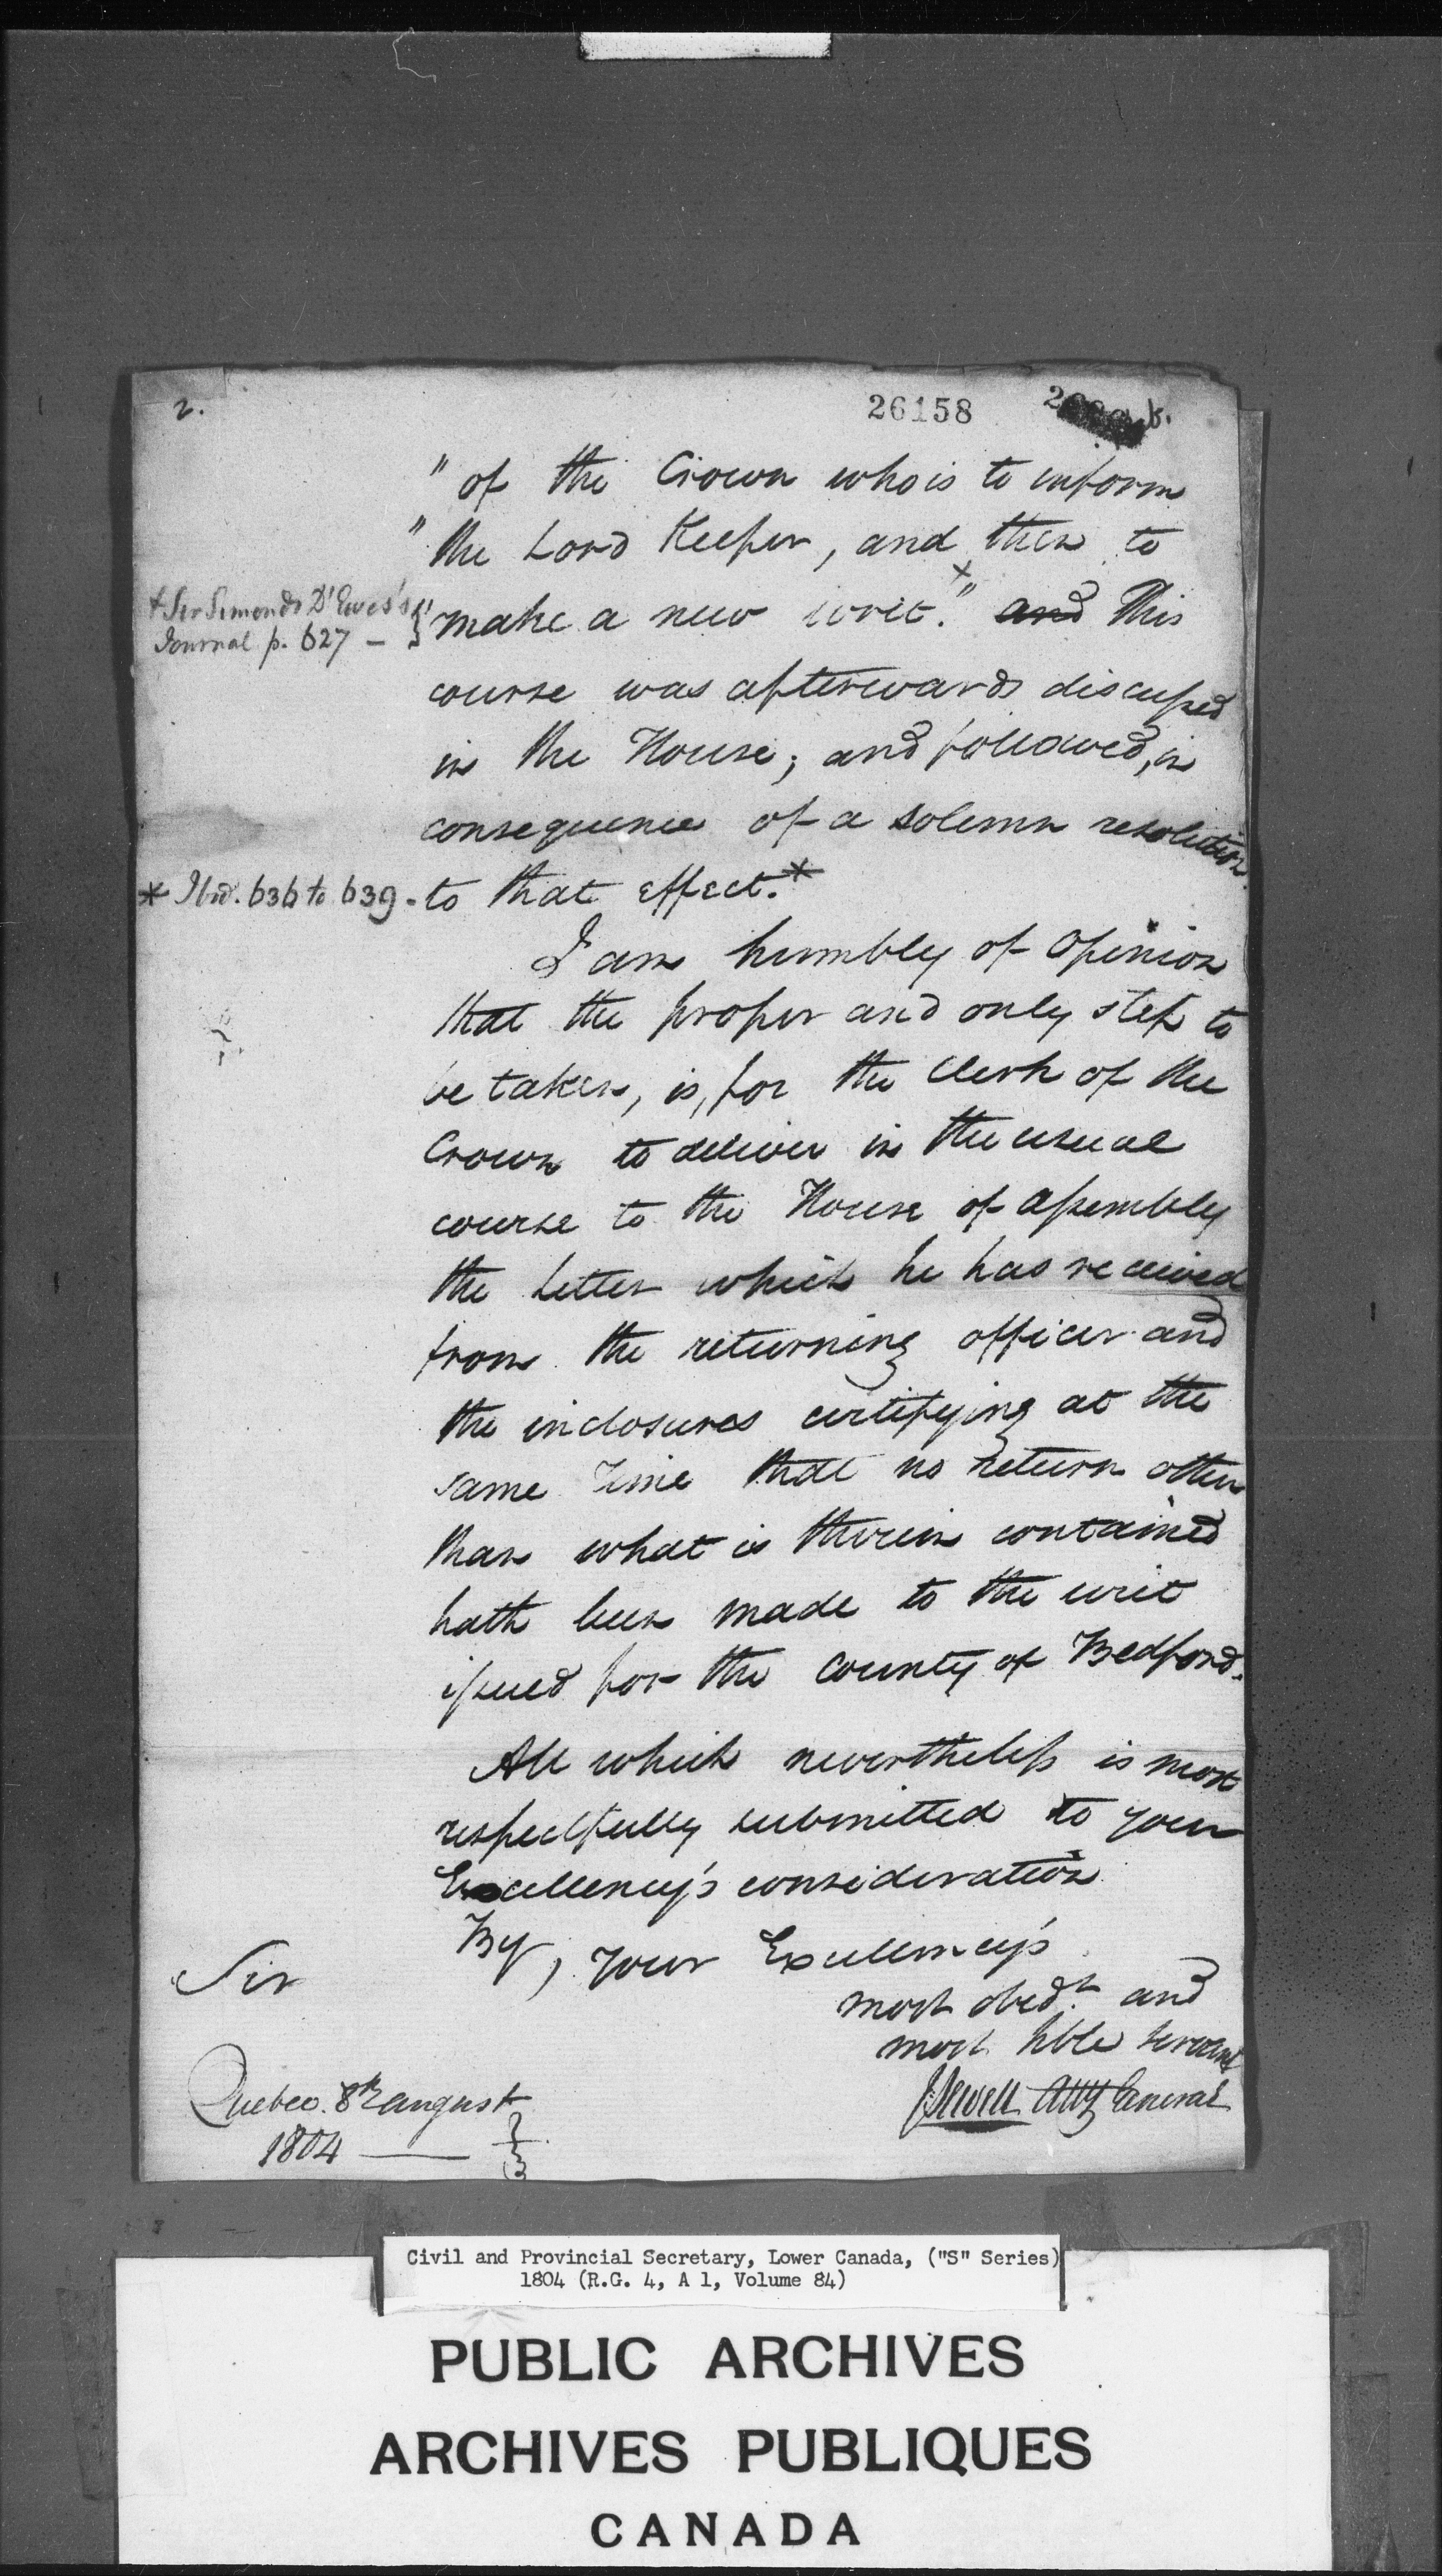 2.
26158
b.
" of the Crown who is to inform
" the Lord Keeper, and then to
+ Sir Simonds D'Ewes's
Journal p. 627 —
" make a new writ." x and This
course was afterwards discussed
in the House; and followed, in
consequence of a solemn resolution
* Ibid. 636 to 639.
to that effect.*
I am humbly of Opinion
that the proper and only step to
be taken, is, for the Clerk of the
Crown to deliver in the usual
course to the House of Assembly
the letter which he has received
from the returning officer and
the inclosures certifying at the
same time that no return other
than what is therein contained
hath been made to the writ
issued for the County of Bedford.
All which nevertheless is most
respectfully submitted to your
Excellency's consideration
By, Your Excellency's
Sir
most obedt. and
most hble servant
J Sewell Atty General
Quebec. 8th august
1804 —
Civil and Provincial Secretary, Lower Canada, ("S" Series)
1804 (R.G. 4, A 1, Volume 84)
PUBLIC ARCHIVES
ARCHIVES PUBLIQUES
CANADA